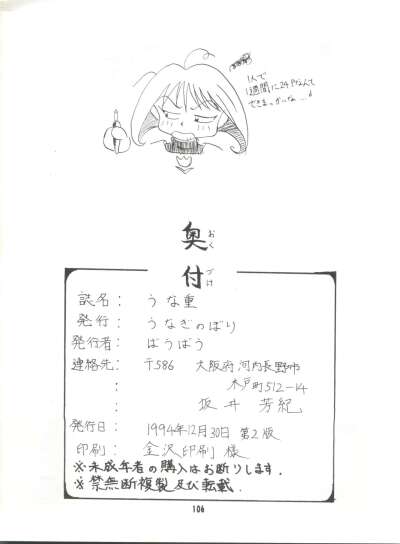 1人で
1週間に24Pなんて
できまっかいな…!
奥おく
付づけ
誌名： うな重
発行： うなぎのぼり
発行者： ばうばう
連絡先： 〒586 大阪府河内長野市
： 木戸町512-14
： 坂井 芳紀
発行日： 1994年12月30日 第2版
印刷： 金沢印刷 様
※未成年者の購入はお断りします.
※禁無断複製及び転載.
106